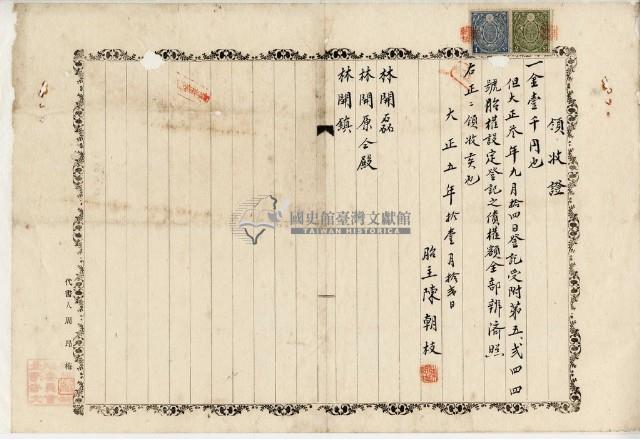 領收證
一金壹千円也
但大正叁年九月拾四日登記受附第五、貳四四
號胎權設定登記之債權額全部辦濟照
右正ニ領收候也
大正五年拾壹月拾貳日
胎主陳朝枝
林開磊
林開原仝殿
林開鎮
代書人周昂梅
國史館臺灣文獻館
TAIWAN HISTORICA